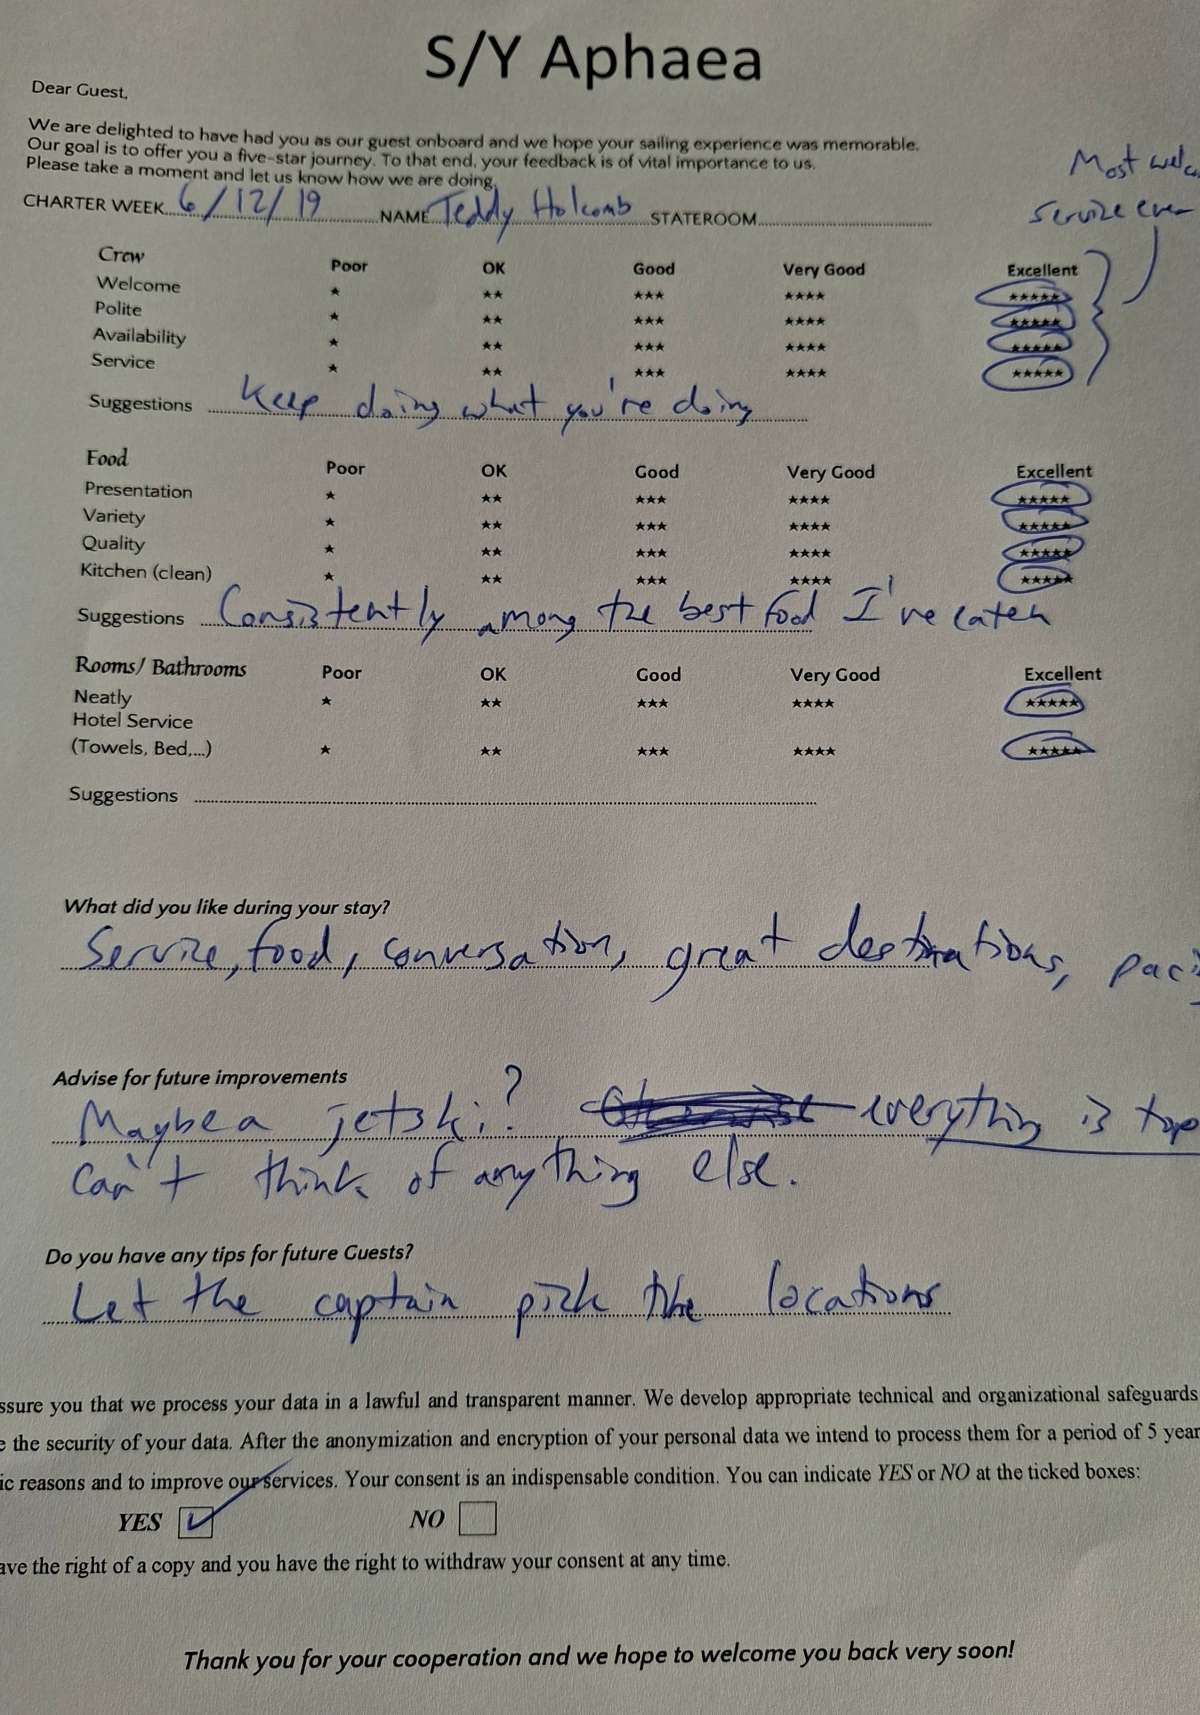 S/Y Aphaea
Dear Guest,
We are delighted to have had you as our guest onboard and we hope your sailing experience was memorable.
Our goal is to offer you a five-star journey. To that end, your feedback is of vital importance to us.
Please take a moment and let us know how we are doing.
Most welco
service ever
CHARTER WEEK 6/12/19 NAME Teddy Holcomb STATEROOM
Crew Poor OK Good Very Good Excellent
Welcome ★ ★★ ★★★ ★★★★ ★★★★★
Polite ★ ★★ ★★★ ★★★★ ★★★★★
Availability ★ ★★ ★★★ ★★★★ ★★★★★
Service ★ ★★ ★★★ ★★★★ ★★★★★
Suggestions Keep doing what you're doing
Food Poor OK Good Very Good Excellent
Presentation ★ ★★ ★★★ ★★★★ ★★★★★
Variety ★ ★★ ★★★ ★★★★ ★★★★★
Quality ★ ★★ ★★★ ★★★★ ★★★★★
Kitchen (clean) ★ ★★ ★★★ ★★★★ ★★★★★
Suggestions Consistently among the best food I've eaten
Rooms/ Bathrooms Poor OK Good Very Good Excellent
Neatly ★ ★★ ★★★ ★★★★ ★★★★★
Hotel Service
(Towels, Bed,...) ★ ★★ ★★★ ★★★★ ★★★★★
Suggestions
What did you like during your stay?
Service, food, conversation, great destinations,
Advise for future improvements
Maybe a jetski? everything is top
can't think of anything else.
Do you have any tips for future Guests?
Let the captain pick the locations
ssure you that we process your data in a lawful and transparent manner. We develop appropriate technical and organizational safeguards
e the security of your data. After the anonymization and encryption of your personal data we intend to process them for a period of 5 year
ic reasons and to improve our services. Your consent is an indispensable condition. You can indicate YES or NO at the ticked boxes:
YES NO
ave the right of a copy and you have the right to withdraw your consent at any time.
Thank you for your cooperation and we hope to welcome you back very soon!